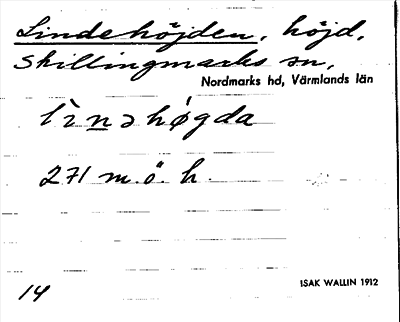 Lindehöjden, höjd,
Skillingmarks sn,
Nordmarks hd, Värmlands län
lìnəhøgda
271 m.ö.h.
14
ISAK WALLIN 1912